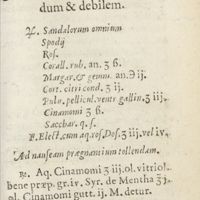 dum & debilem.
℞. Sandalorum omnium
Spodij
Ros.
Corall. rub. an. ʒ 6.
Margar. & gemm. an. ℈ ij.
Cort. citri cond. ʒ ij.
Pulv. pellicul. ventr gallin. ʒ iij.
Cinamomi ʒ 6.
Sacchar. q. s.
F. Elect. cum aq. ros. Dos. ʒ iij. vel iv.
Ad nauseam prægnantium tollendam.
℞. Aq. Cinamomi ʒ iij. ol. vitriol.
bene præp. gr. iv. Syr. de Mentha ʒ
ol. Cinamomi gutt. ij. M. detur.